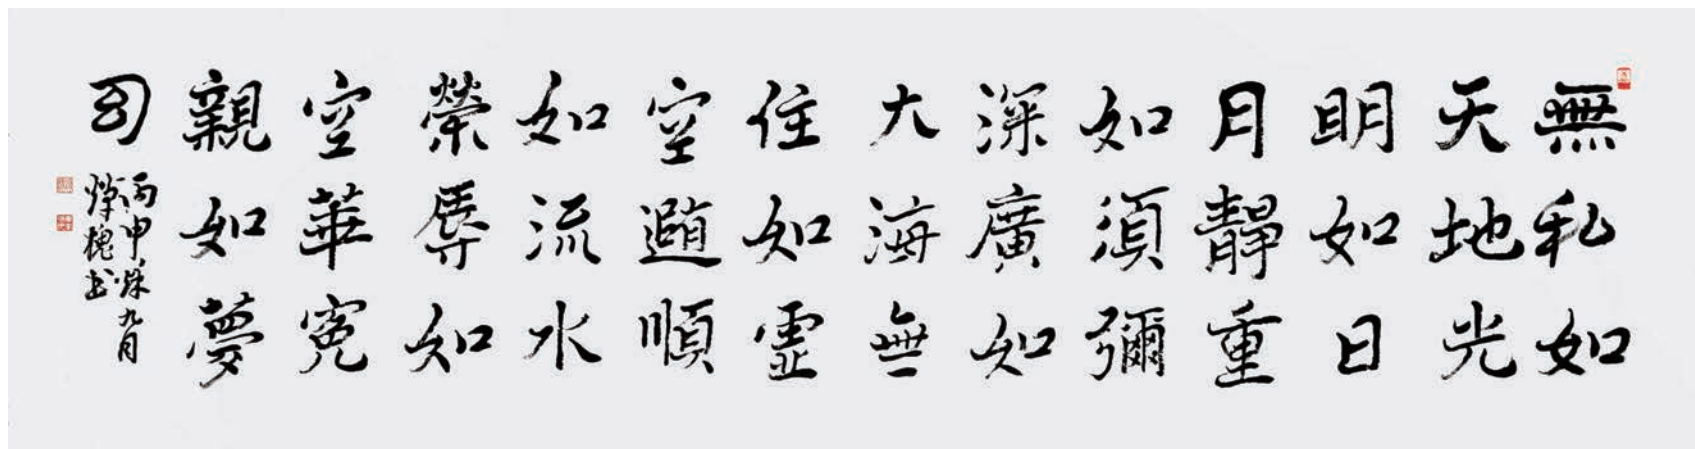 無私如
天地光
明如日
月靜重
如須彌
深廣如
大海無
住如虛
空隨順
如流水
榮辱如
空華冤
親如夢
幻
丙申秋九月
槐书